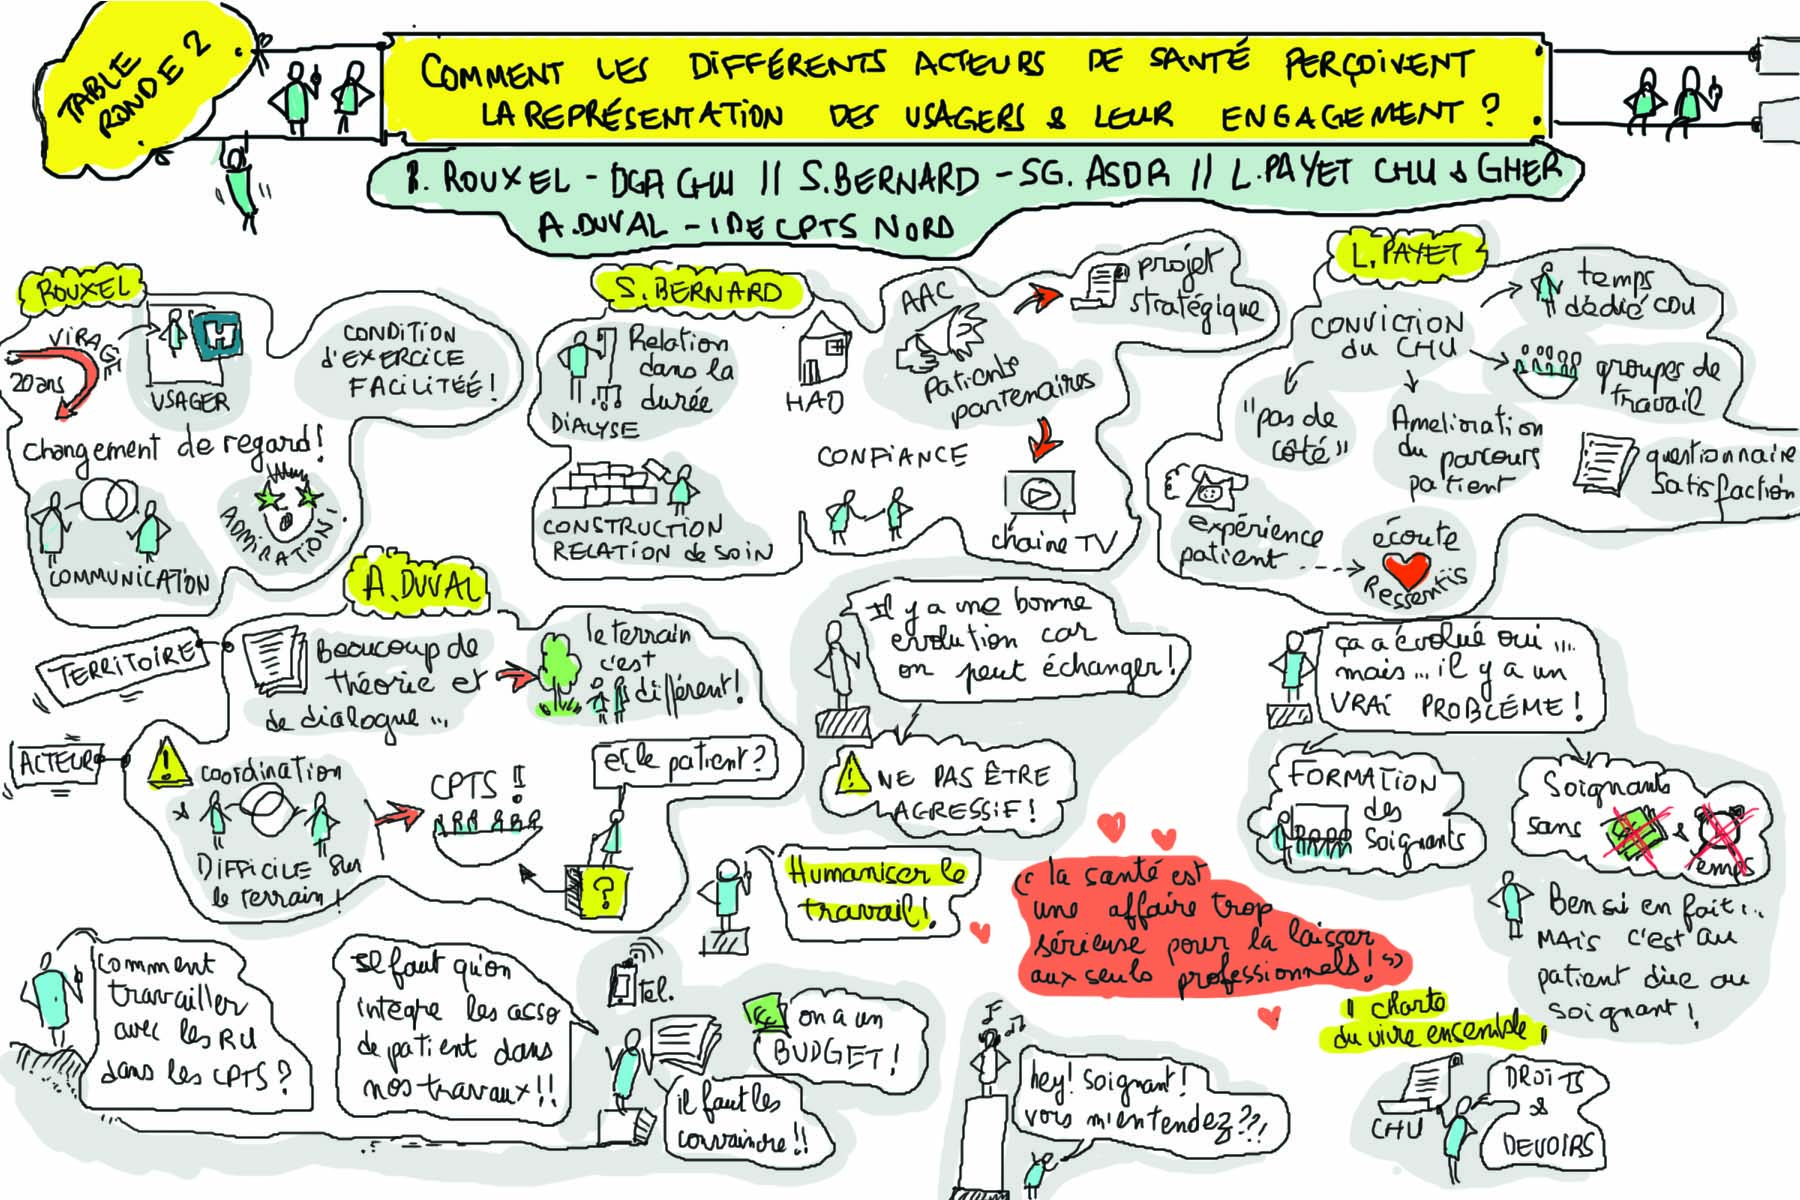 TABLE
RONDE 2
COMMENT LES DIFFÉRENTS ACTEURS DE SANTÉ PERÇOIVENT
LA REPRÉSENTATION DES USAGERS & LEUR ENGAGEMENT ?
ROUXEL - DGA CHU // S.BERNARD - SG. ASDR // L.PAYET CHU & GHER
A.DUVAL - IDE CPTS NORD
ROUXEL
VIRAGE
20 ans
H
USAGER
CONDITION
d'EXERCICE
FACILITÉÉ !
changement de regard !
COMMUNICATION
ADMIRATION !
S. BERNARD
Relation
dans la
durée
DIALYSE
HAD
AAC
Patients
partenaires
projet
stratégique
CONSTRUCTION
RELATION de SOIN
CONFIANCE
chaine TV
L. PAYET
CONVICTION
du CHU
temps
dédié COU
groupes de
travail
"pas de
côté"
Amelioration
du parcours
patient
questionnaire
Satisfaction
expérience
patient
écoute
Ressentis
A. DUVAL
TERRITOIRE
ACTEUR
Beaucoup de
théorie et
de dialogue...
le terrain
c'est
différent !
!
coordination
DIFFICILE sur
le terrain !
CPTS !!
et le patient ?
?
Il y a une bonne
évolution car
on peut échanger !
! NE PAS ÊTRE
AGRESSIF !
ça a évolué oui ...
mais... il y a un
VRAI PROBLÉME !
FORMATION
des
Soignants
Soignants
sans & temps
Humaniser le
travail !
" la santé est
une affaire trop
sérieuse pour la laisser
aux seuls professionnels ! "
Ben si en fait !...
MAIS c'est au
patient dire au
soignant !
comment
travailler
avec les RU
dans les CPTS ?
Il faut qu'on
intègre les asso
de patient dans
nos travaux !!
tel.
on a un
BUDGET !
il faut les
convaincre !!
hey ! Soignant !
vous m'entendez ??!
" charte
du vivre ensemble "
CHU
DROITS
&
DEVOIRS